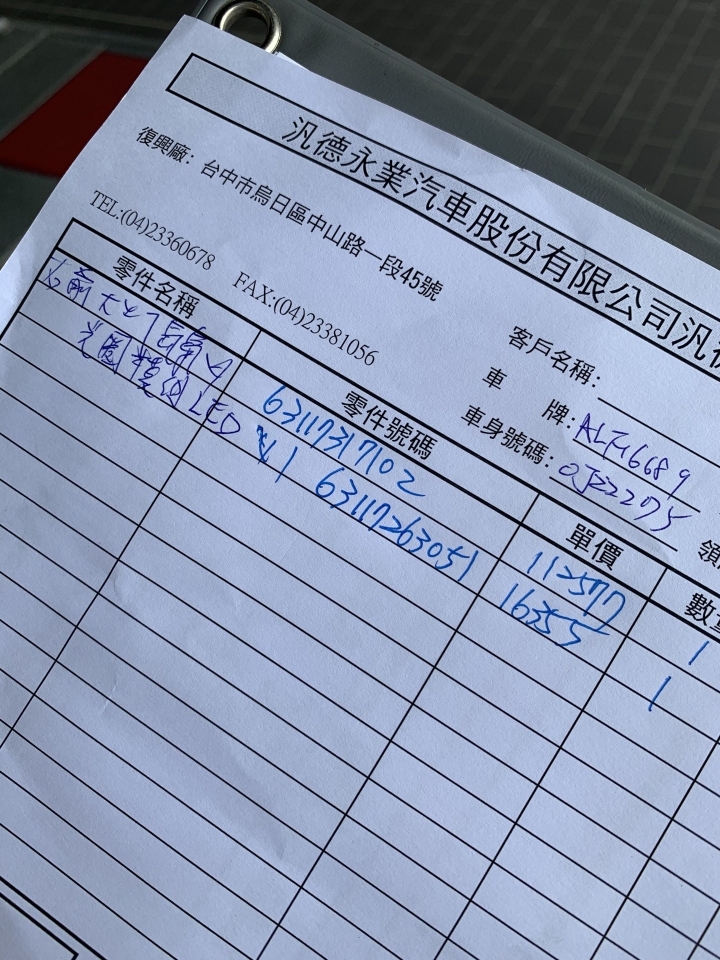 汎德永業汽車股份有限公司汎德
復興廠: 台中市烏日區中山路一段45號
TEL:(04)23360678 FAX:(04)23381056
客戶名稱:
車 牌: ALF-6689
車身號碼: 0J222075
領
零件名稱 零件號碼 單價 數量
右前大 63117317102 112577 1
光圈模組LED 63117263051 16355 1